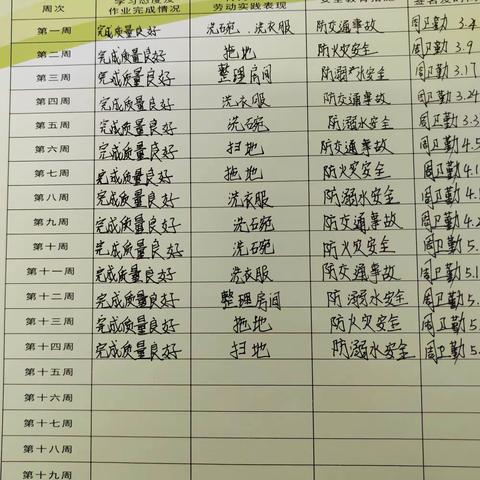 周次 学习态度及作业完成情况 劳动实践表现
第一周 完成质量良好 洗碗、洗衣服 防交通事故 周卫勤 3.4
第二周 完成质量良好 拖地 防火灾安全 周卫勤 3.9
第三周 完成质量良好 整理房间 防溺水安全 周卫勤 3.17
第四周 完成质量良好 洗衣服 防交通事故 周卫勤 3.24
第五周 完成质量良好 洗碗 防溺水安全 周卫勤 3.3
第六周 完成质量良好 扫地 防交通事故 周卫勤 4.5
第七周 完成质量良好 拖地 防火灾安全 周卫勤 4.1
第八周 完成质量良好 洗衣服 防溺水安全 周卫勤 4.1
第九周 完成质量良好 洗碗 防交通事故 周卫勤 4.2
第十周 完成质量良好 洗碗 防火灾安全 周卫勤 5.
第十一周 完成质量良好 洗衣服 防交通事故 周卫勤 5.1
第十二周 完成质量良好 整理房间 防溺水安全 周卫勤 5.
第十三周 完成质量良好 拖地 防火灾安全 周卫勤 5.
第十四周 完成质量良好 扫地 防溺水安全 周卫勤 5.
第十五周
第十六周
第十七周
第十八周
第十九周